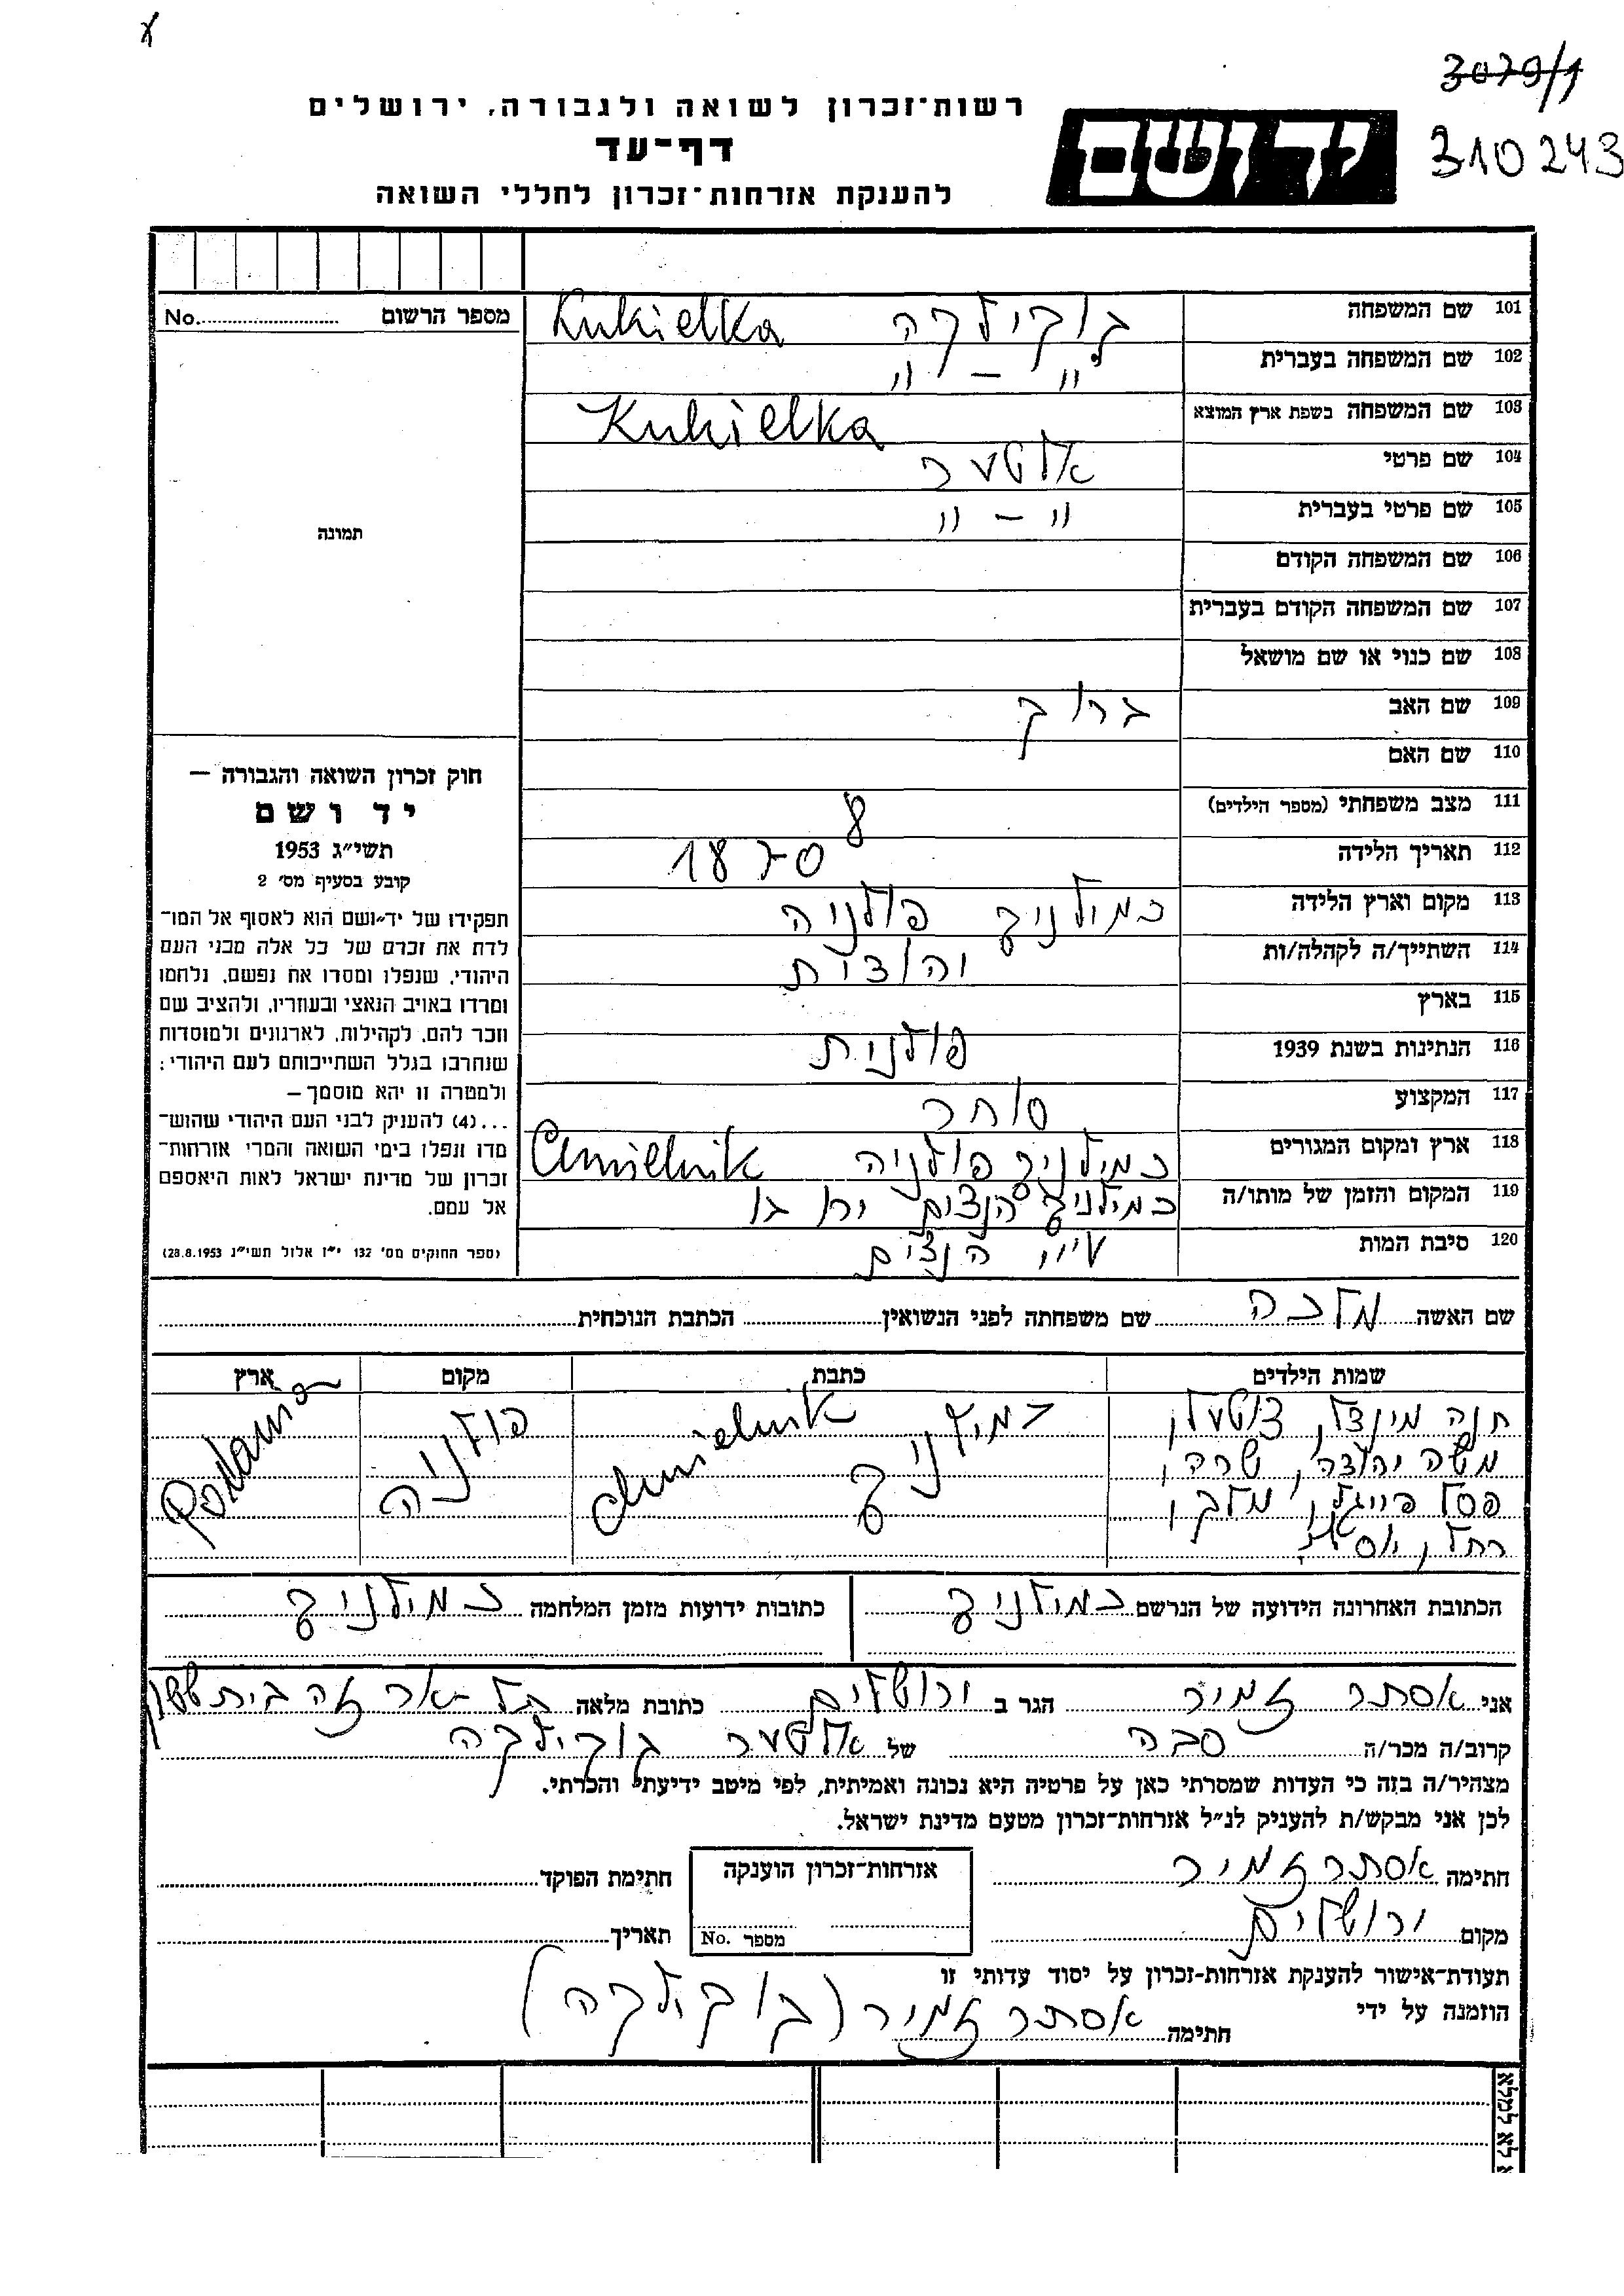 3079/1
310243
רשות־זכרון לשואה ולגבורה, ירושלים
יד ושם
דף־עד
להענקת אזרחות־זכרון לחללי השואה
מספר הרשום No.
תמונה
101 שם המשפחה קוקילקה Kukielka
102 שם המשפחה בעברית -"- "
103 שם המשפחה בשפת ארץ המוצא Kukielka
104 שם פרטי אלטער
105 שם פרטי בעברית " - "
106 שם המשפחה הקודם
107 שם המשפחה הקודם בעברית
108 שם כנוי או שם מושאל
109 שם האב ברוך
110 שם האם
111 מצב משפחתי (מספר הילדים) 8
112 תאריך הלידה 1870
113 מקום וארץ הלידה כמילניק פולניה
114 השתייך/ה לקהלה/ות יהודית
115 בארץ
116 הנתינות בשנת 1939 פולנית
117 המקצוע סוחר
118 ארץ ומקום המגורים כמילניק פולניה Chmielnik
119 המקום והזמן של מותו/ה כמילניק הנצים
120 סיבת המות ע"י הנצים
חוק זכרון השואה והגבורה —
יד ושם
תשי״ג 1953
קובע בסעיף מס׳ 2
תפקידו של יד־ושם הוא לאסוף אל המו־
לדת את זכרם של כל אלה מבני העם
היהודי, שנפלו ומסרו את נפשם, נלחמו
ומרדו באויב הנאצי ובעוזריו, ולהציב שם
וזכר להם, לקהילות, לארגונים ולמוסדות
שנחרבו בגלל השתייכותם לעם היהודי;
ולמטרה זו יהא מוסמך —
...(4) להעניק לבני העם היהודי שהוש־
מדו ונפלו בימי השואה והמרי אזרחות־
זכרון של מדינת ישראל לאות היאספם
אל עמם.
(ספר החוקים מס׳ 132 י״ז אלול תשי״ג 28.8.1953)
שם האשה מלכה שם משפחתה לפני הנשואין הכתבת הנוכחית
שמות הילדים כתבת מקום ארץ
חנה מינדל, כמילניק chmielnik פולניה
משה יהודה, שרה,
פסל פייגל,
רחל,
הכתובת האחרונה הידועה של הנרשם כמילניק כתובות ידועות מזמן המלחמה כמילניק
אני אסתר זמיר הגר ב ירושלים כתובת מלאה
קרוב/ה מכר/ה סבה של אלטער קוקילקה
מצהיר/ה בזה כי העדות שמסרתי כאן על פרטיה היא נכונה ואמיתית, לפי מיטב ידיעתי והכרתי.
לכן אני מבקש/ת להעניק לנ״ל אזרחות־זכרון מטעם מדינת ישראל.
חתימה אסתר זמיר אזרחות־זכרון הוענקה חתימת הפוקד
מקום ירושלים מספר No. תאריך
תעודת־אישור להענקת אזרחות־זכרון על יסוד עדותי זו
הוזמנה על ידי
חתימה אסתר זמיר (קוקילקה)
נא לא למלא